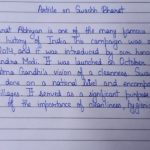 Article on Swachh Bharat
Bharat Abhiyan is one of the many famous
history of India. This campaign was
and it was introduced by our hon
Narendra Modi. It was launched on October
Mahatma Gandhi's vision of a cleanness
done on a national level and encompas
villages. It served as a significant purpose
of the importance of cleanliness, hygiene